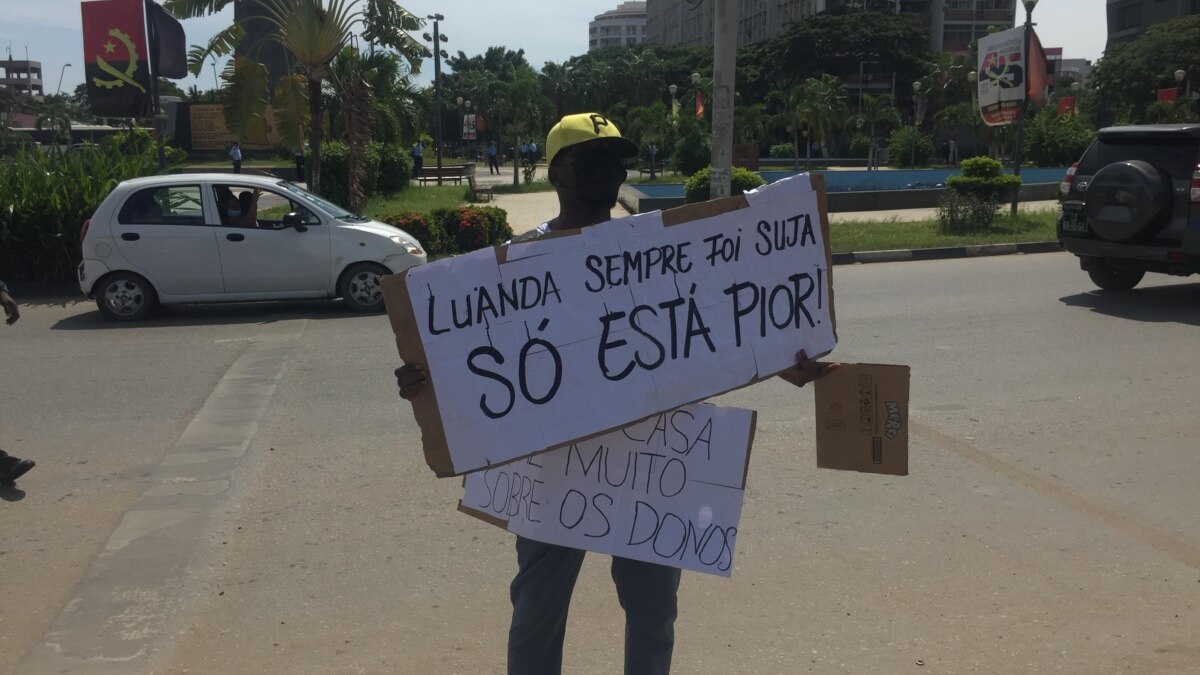 LUANDA SEMPRE FOI SUJA
SÓ ESTÁ PIOR!
CASA
MUITO
SOBRE OS DONOS
P
45